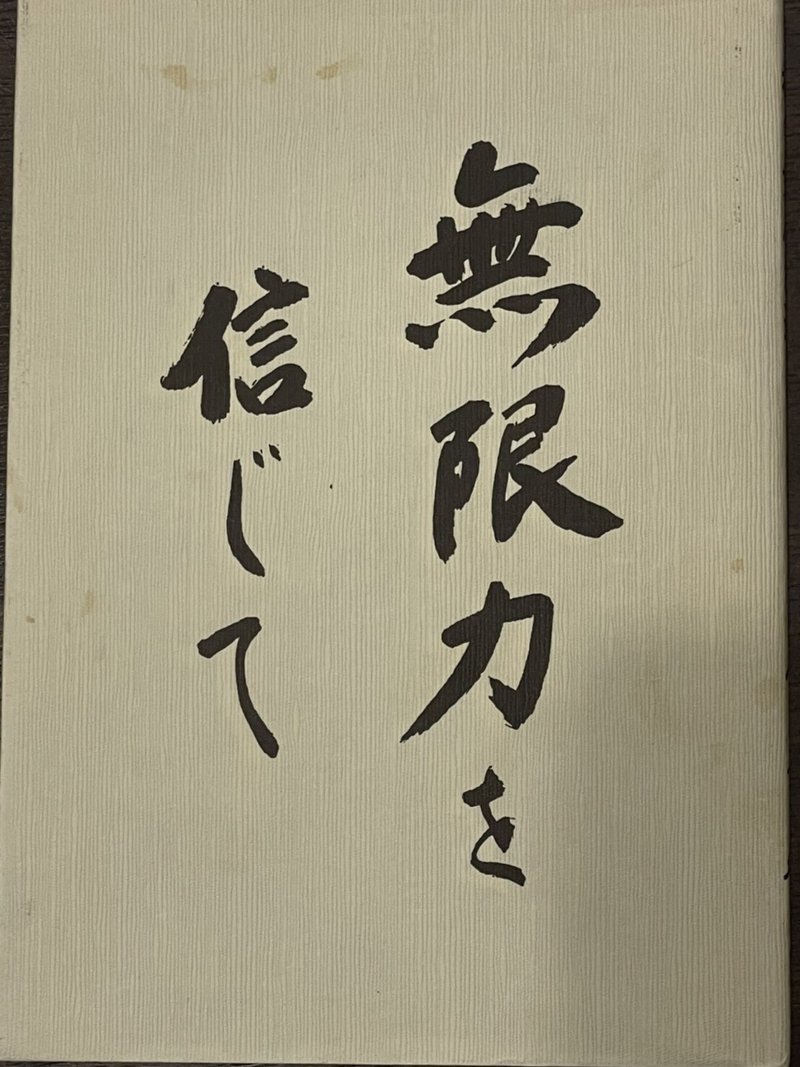 無限力を
信じて